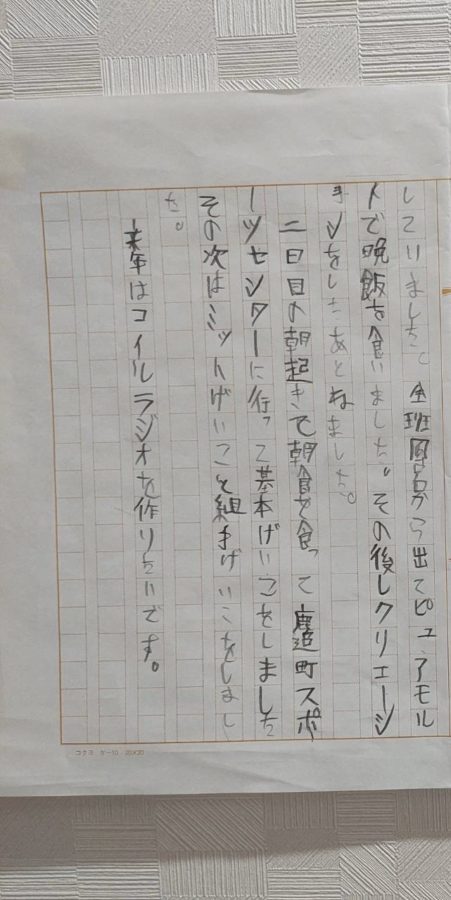 していました。全班風呂から出てピュアモル
トで晩飯を食いました。その後レクリエーシ
ョンをしたあとねました。
二日目の朝起きて朝食を食って鹿追町スポ
ーツセンターに行って基本げいこをしました
その次はミットげいこと組手げいこをしまし
た。
来年はコイルラジオを作りたいです。
コクヨ ケ-10 20×20